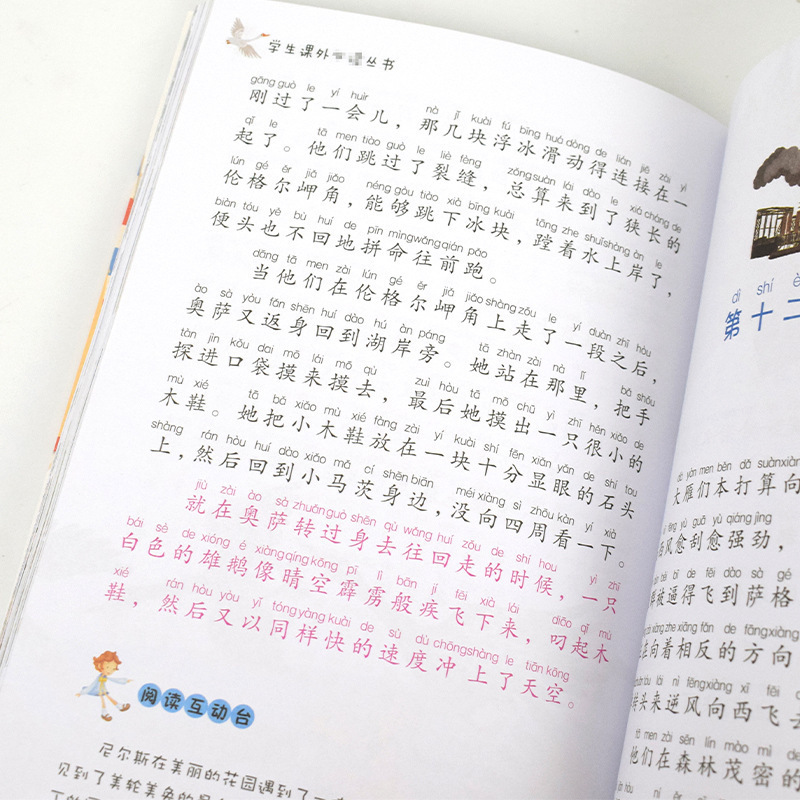 学生课外 丛书
gāng guò le yí huìr nà jǐ kuài fú bīng huá dòng de lián jiē zài yì
刚过了一会儿，那几块浮冰滑动得连接在一
qǐ le tā men tiào guò le liè fèng zǒng suàn lái dào le xiá cháng de
起了。他们跳过了裂缝，总算来到了狭长的
lún gé ěr jiǎ jiǎo néng gòu tiào xià bīng kuài tāng zhe shuǐ shàng àn le
伦格尔岬角，能够跳下冰块，蹚着水上岸了，
biàn tóu yě bù huí de pīn mìng wǎng qián pǎo
便头也不回地拼命往前跑。
dāng tā men zài lún gé ěr jiǎ jiǎo shàng zǒu le yí duàn zhī hòu
当他们在伦格尔岬角上走了一段之后，
ào sà yòu fǎn shēn huí dào hú àn páng tā zhàn zài nà lǐ bǎ shǒu
奥萨又返身回到湖岸旁。她站在那里，把手
tàn jìn kǒu dai mō lái mō qù zuì hòu tā mō chū yì zhī hěn xiǎo de
探进口袋摸来摸去，最后她摸出一只很小的
mù xié tā bǎ xiǎo mù xié fàng zài yí kuài shí fēn xiǎn yǎn de shí tou
木鞋。她把小木鞋放在一块十分显眼的石头
shàng rán hòu huí dào xiǎo mǎ cí shēn biān méi xiàng sì zhōu kàn yí xià
上，然后回到小马茨身边，没向四周看一下。
jiù zài ào sà zhuǎn guò shēn qù wǎng huí zǒu de shí hou yì zhī
就在奥萨转过身去往回走的时候，一只
bái sè de xióng é xiàng qíng kōng pī lì bān jí fēi xià lái diāo qǐ mù
白色的雄鹅像晴空霹雳般疾飞下来，叼起木
xié rán hòu yòu yǐ tóng yàng kuài de sù dù chōng shàng le tiān kōng
鞋，然后又以同样快的速度冲上了天空。
阅读互动台
尼尔斯在美丽的花园遇到了一
见到了美轮美奂的
dì shí èr
第十二
dà yàn men běn dǎ suàn xiàng
大雁们本打算向
fēng yù guā yù qiáng jìng
风愈刮愈强劲，
bèi bī de fēi dào sà gé
被逼得飞到萨格
xiàng zhe xiāng fǎn de fāng xiàng
向着相反的方向
zhuǎn tóu lái nì fēng xiàng xī fēi
转头来逆风向西飞
tā men zài sēn lín mào mì de
他们在森林茂密的